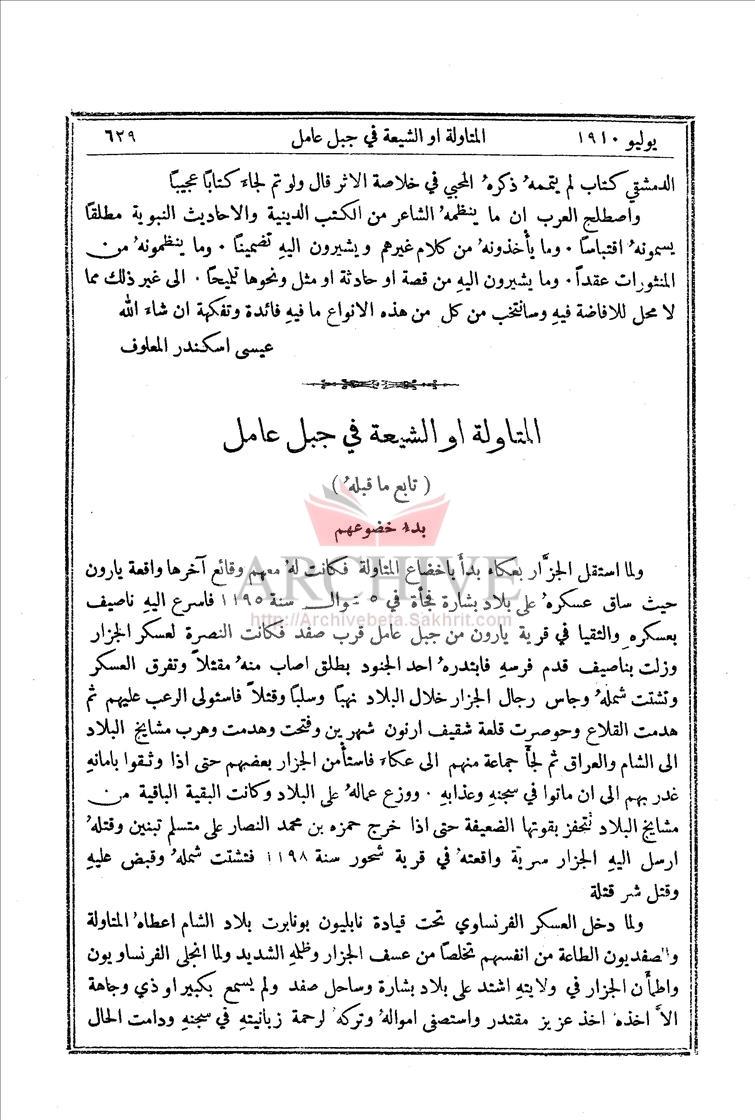 يوليو ١٩١٠ المتاولة او الشيعة في جبل عامل ٦٢٩
الدمشقي كتاب لم يتممهُ ذكرهُ المحبي في خلاصة الاثر قال ولو تم لجاءَ كتابًا عجيبًا
واصطلح العرب ان ما ينظمهُ الشاعر من الكتب الدينية والاحاديث النبوية مطلقًا
يسمونهُ اقتباسًا ٠ وما يأخذونهُ من كلام غيرهم ويشيرون اليهِ تضمينًا ٠ وما ينظمونهُ من
المنثورات عقدًا ٠ وما يشيرون اليهِ من قصة او حادثة او مثل ونحوها تمليحًا ٠ الى غير ذلك مما
لا محل للافاضة فيهِ وسانتخب من كل من هذه الانواع ما فيهِ فائدة وتفكهة ان شاء الله
عيسى اسكندر المعلوف
المتاولة او الشيعة في جبل عامل
( تابع ما قبلهُ )
بدء خضوعهم
ARCHIVE
http://Archivebeta.Sakhrit.com
ولما استقل الجزَّار بعكاء بدأ باخضاع المتاولة فكانت لهُ معهم وقائع آخرها واقعة يارون
حيث ساق عسكرهُ على بلاد بشارة فجأة في ٥ شوال سنة ١١٩٥ فاسرع اليهِ ناصيف
بعسكرهِ والتقيا في قرية يارون من جبل عامل قرب صفد فكانت النصرة لعسكر الجزار
وزلت بناصيف قدم فرسهِ فابتدرهُ احد الجنود بطلق اصاب منهُ مقتلاً وتفرق العسكر
وتشتت شملهُ وجاس رجال الجزار خلال البلاد نهبًا وسلبًا وقتلاً فاستولى الرعب عليهم ثم
هدمت القلاع وحوصرت قلعة شقيف ارنون شهرين وفتحت وهدمت وهرب مشايخ البلاد
الى الشام والعراق ثم لجأ جماعة منهم الى عكاء فاستأمن الجزار بعضهم حتى اذا وثقوا بامانهِ
غدر بهم الى ان ماتوا في سجنهِ وعذابهِ ٠ ووزع عمالهُ على البلاد وكانت البقية الباقية من
مشايخ البلاد تتحفز بقوتها الضعيفة حتى اذا خرج حمزه بن محمد النصار على متسلم تبنين وقتلهُ
ارسل اليهِ الجزار سرية واقعتهُ في قرية شحور سنة ١١٩٨ فتشتت شملهُ وقبض عليهِ
وقتل شر قتلة
ولما دخل العسكر الفرنساوي تحت قيادة نابليون بونابرت بلاد الشام اعطاهُ المتاولة
والصفديون الطاعة من انفسهم تخلصًا من عسف الجزار وظلمهِ الشديد ولما انجلى الفرنساويون
واطمأن الجزار في ولايتهِ اشتد على بلاد بشارة وساحل صفد ولم يسمع بكبير او ذي وجاهة
الاَّ اخذهُ اخذ عزيز مقتدر واستصفى اموالهُ وتركهُ لرحمة زبانيتهِ في سجنهِ ودامت الحال